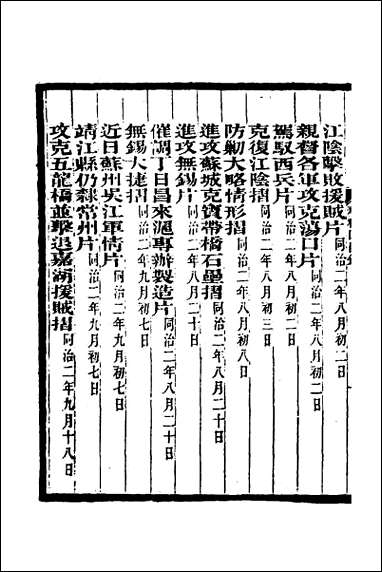 江陰擊敗援賊片同治二年八月初二日
親督各軍攻克蕩口片同治二年八月初二日
駕馭西兵片同治二年八月初二日
克復江陰摺同治二年八月初三日
防剿大略情形摺同治二年八月初八日
進攻蘇城克寶帶橋石壘摺同治二年八月二十日
進攻無錫片同治二年八月二十日
催調丁日昌來滬專辦製造片同治二年八月二十日
無錫大捷摺同治二年九月初七日
近日蘇州吳江軍情片同治二年九月初七日
靖江縣仍隸常州片同治二年九月初七日
攻克五龍橋並擊退嘉湖援賊摺同治二年九月十八日